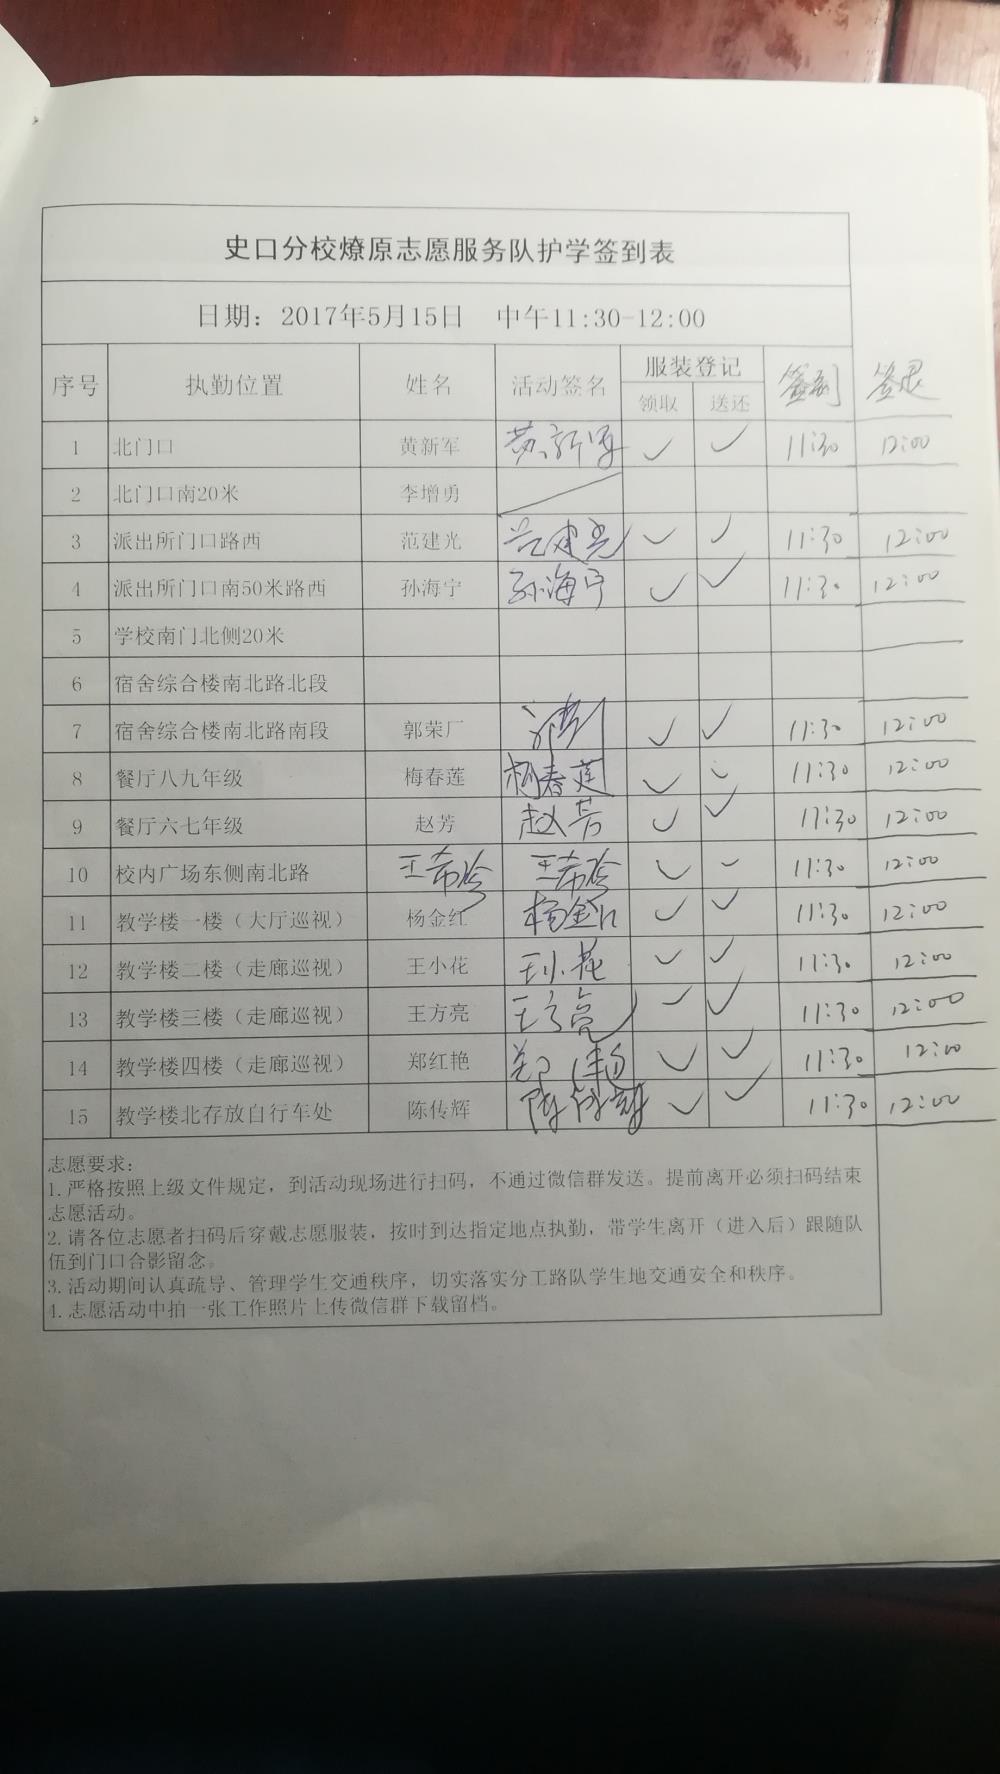 史口分校燎原志愿服务队护学签到表
日期：2017年5月15日 中午11:30-12:00
序号 执勤位置 姓名 活动签名 服装登记 签到 签退
领取 送还
1 北门口 黄新军 黄新军 ✓ ✓ 11:30 12:00
2 北门口南20米 李增勇
3 派出所门口路西 范建光 范建光 ✓ ✓ 11:30 12:00
4 派出所门口南50米路西 孙海宁 孙海宁 ✓ ✓ 11:30 12:00
5 学校南门北侧20米
6 宿舍综合楼南北路北段
7 宿舍综合楼南北路南段 郭荣厂 ✓ ✓ 11:30 12:00
8 餐厅八九年级 梅春莲 梅春莲 ✓ ✓ 11:30 12:00
9 餐厅六七年级 赵芳 赵芳 ✓ ✓ 11:30 12:00
10 校内广场东侧南北路 王希玲 王希玲 ✓ ✓ 11:30 12:00
11 教学楼一楼（大厅巡视） 杨金红 杨金红 ✓ ✓ 11:30 12:00
12 教学楼二楼（走廊巡视） 王小花 王小花 ✓ ✓ 11:30 12:00
13 教学楼三楼（走廊巡视） 王方亮 王方亮 ✓ ✓ 11:30 12:00
14 教学楼四楼（走廊巡视） 郑红艳 ✓ ✓ 11:30 12:00
15 教学楼北存放自行车处 陈传辉 陈传辉 ✓ ✓ 11:30 12:00
志愿要求：
1.严格按照上级文件规定，到活动现场进行扫码，不通过微信群发送。提前离开必须扫码结束
志愿活动。
2.请各位志愿者扫码后穿戴志愿服装，按时到达指定地点执勤，带学生离开（进入后）跟随队
伍到门口合影留念。
3.活动期间认真疏导、管理学生交通秩序，切实落实分工路队学生地交通安全和秩序。
4.志愿活动中拍一张工作照片上传微信群下载留档。